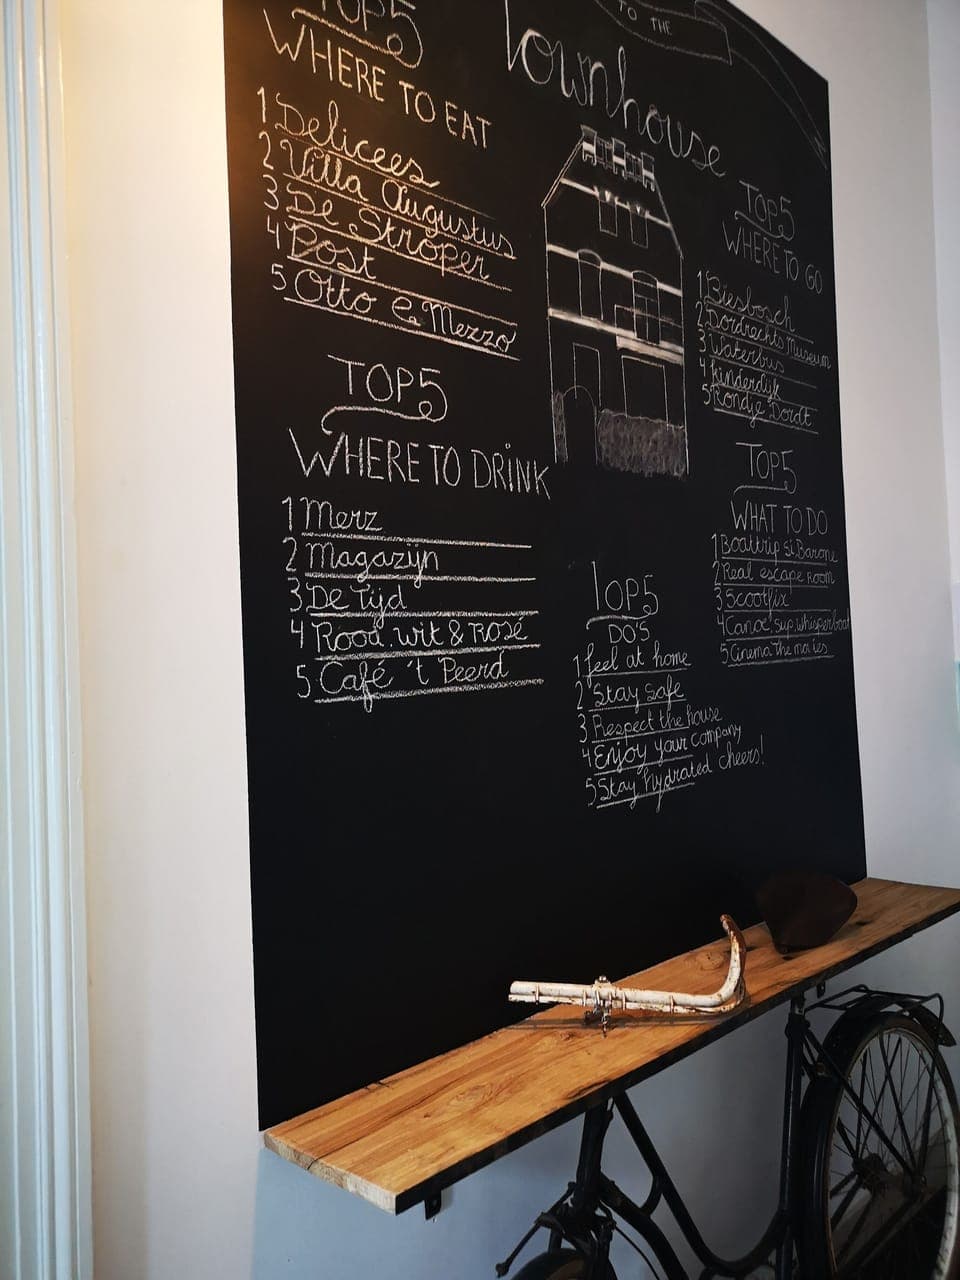 TO THE
Townhouse
TOP5
WHERE TO EAT
1 Delicees
2 Villa Augustus
3 De Stroper
4 Post
5 Otto e Mezzo
TOP5
WHERE TO DRINK
1 Merz
2 Magazijn
3 De Tijd
4 Rood. wit & Rosé
5 Café 't Peerd
TOP5
WHERE TO GO
1 Biesbosch
2 Dordrechts Museum
3 Waterbus
4 Kinderdijk
5 Rondje Dordt
TOP5
WHAT TO DO
1 Boattrip si Barone
2 Real escape Room
3 Scootfix
4 Canoe, sup, whisperboat
5 Cinema The
TOP5
DO'S
1 feel at home
2 Stay safe
3 Respect the house
4 Enjoy your company
5 Stay hydrated cheers!